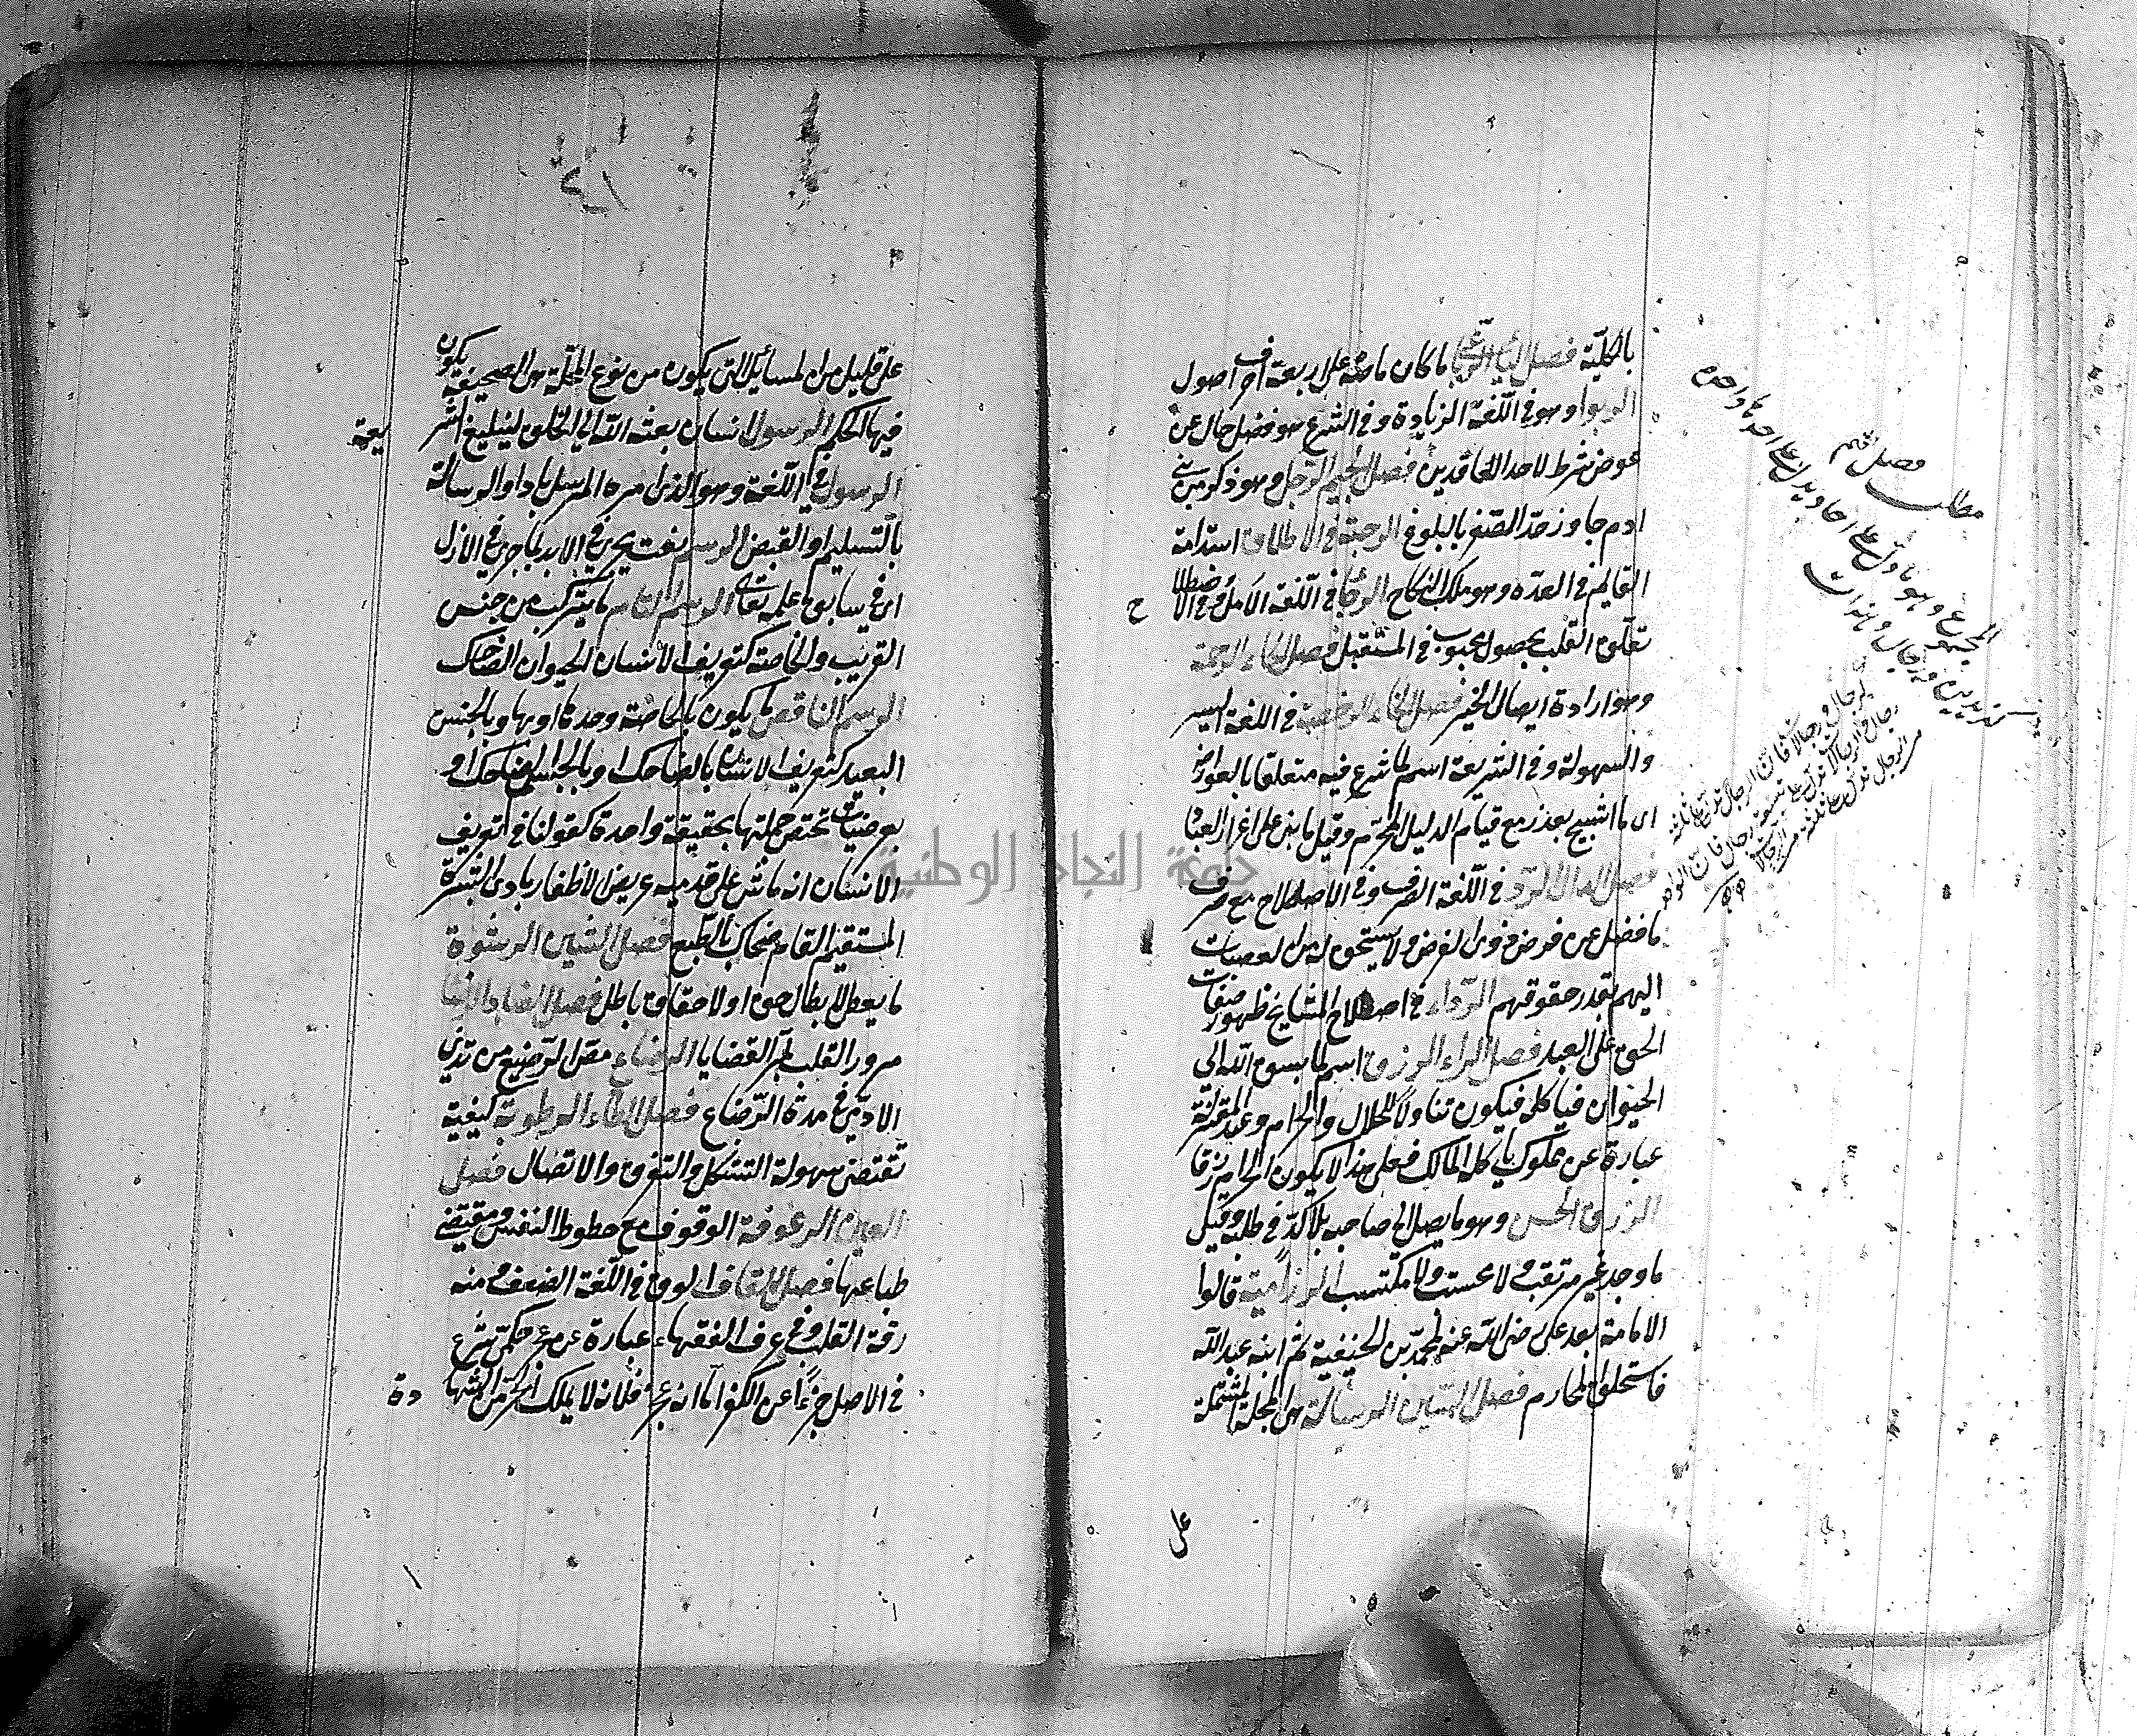 بالكلية فصل الباء الرباعي ما كان ماضيه على اربعة احرف اصول
الربوا وهو في اللغة الزيادة وفي الشرع هو فضل خال عن
عوض شرط لاحد العاقدين فصل الجيم الرجل وهو ذكر من بني
ادم جاوز حد الصغر بالبلوغ الرجعة في الاطلاق استدامة
القائم في العدة وهو ملك النكاح الرجا في اللغة الامل وفي الاصطلا ح
تعلق القلب بحصول محبوب في المستقبل فصل الحاء الرحمة
وهو ارادة ايصال الخير فصل الخاء الرخصة في اللغة اليسر
والسهولة وفي الشريعة اسم لما شرع فيه متعلقا بالعوارض
اى ما استبيح بعذر مع قيام الدليل المحرم وقيل ما بني على اعذار العباد
فصل الدال الرد في اللغة الصرف وفي الاصطلاح صرف
ما فضل عن فرض ذوى الفرض ولا مستحق له من العصبات
اليهم بقدر حقوقهم الرداء في اصطلاح المشايخ ظهور صفات
الحق على العبد فصل الزاء الرزق اسم لما يسوق الله الى
الحيوان فيأكله فيكون تناولا للحلال والحرام وعند المعتزلة
عبارة عن مملوك ياكله المالك فعلى هذا لا يكون الحرام رزقا
الرزق الحسن وهو ما يصل الى صاحبه بلا كد في طلبه وقيل
ما وجد غير مرتقب ولا محتسب ولا مكتسب الرزامية قالوا
الامامة بعد على رضى الله عنه لمحمد بن الحنفية ثم ابنه عبد الله
فاستحلوا المحارم فصل السين الرسالة هى المجلة المشتملة
على
مطلب فصل مهم
على قليل من المسائل التى يكون من نوع المجلة هى الصحيفة يكون
فيها الحكم الرسول انسان بعثه الله الى الخلق لتبليغ الشر يعة
الرسول في اللغة وهو الذى امره المرسل باداء الرسالة
بالتسليم او القبض الرسم نعت يجرى في الابد بما جرى في الازل
اى في سابق علمه تعالى الرسم التام ما يتركب من جنس
القريب والخاصة كتعريف الانسان الحيوان الضاحك
الرسم الناقص ما يكون بالخاصة وحدها او بها وبالجنس
البعيد كتعريف الانسان بالضاحك او بالجسم الضاحك او
بعرضيات تختص جملتها بحقيقة واحدة كقولنا في تعريف
الانسان انه ماش على قدميه عريض الاظفار بادى البشرة
المستقيم القامة ضحاك بالطبع فصل الشين الرشوة
ما يعطى لابطال حق او لاحقاق باطل فصل الضاد الرضا
سرور القلب بمر القضايا الرضاع مص الرضيع من ثدى
الادمى في مدة الرضاع فصل الطاء الرطوبة كيفية
تقتضى سهولة التشكل والتفرق والاتصال فصل
العين الرعونة الوقوف مع حظوظ النفس ومقتضى
طباعها فصل القاف الرق في اللغة الضعف ومنه
رقة القلب وفي عرف الفقهاء عبارة عن عجز حكمى شرع
في الاصل جزاءً عن الكفر اما انه عجز فلانه لا يملك الحر من الشها دة
جامعة النجاح الوطنية